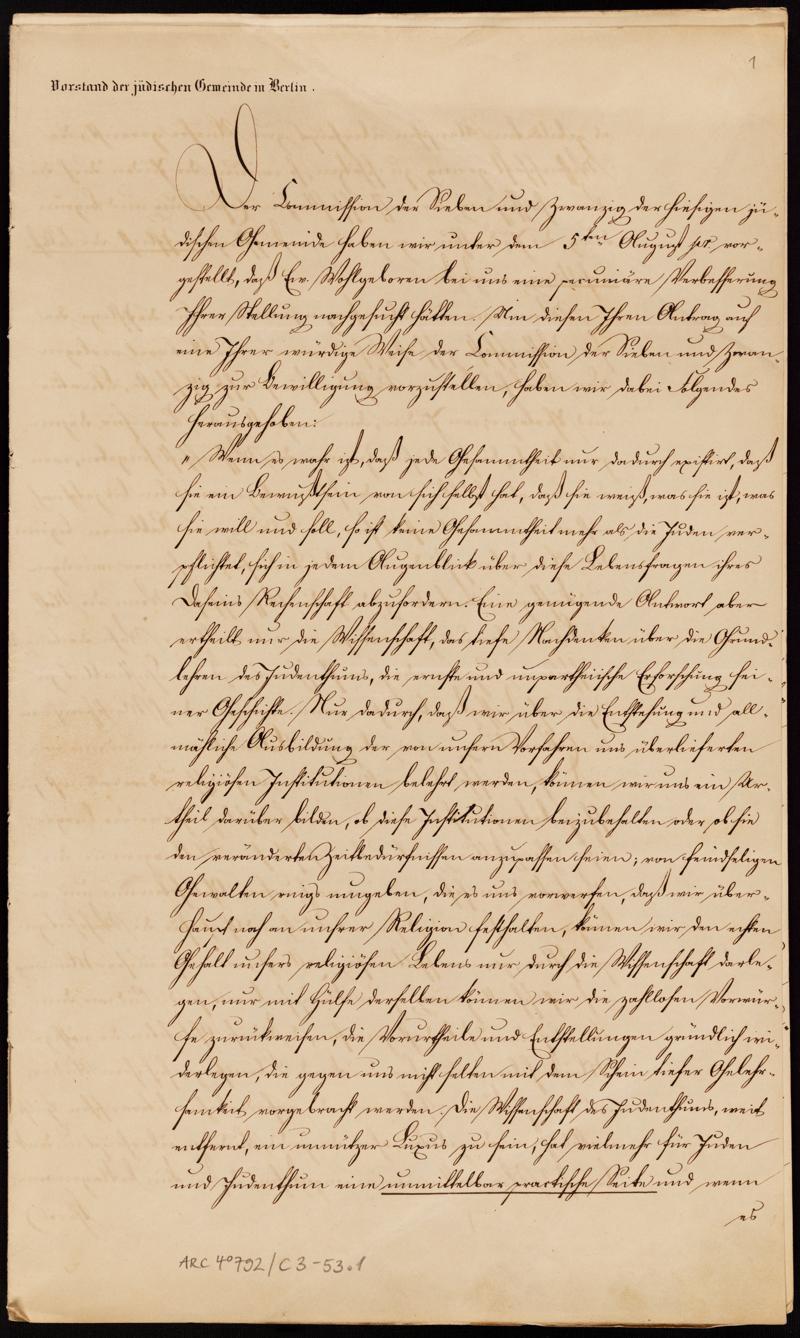 1
Vorstand der jüdischen Gemeinde in Berlin.
Der Commission der Sieben und Zwanzig der hiesigen jü-
dischen Gemeinde haben wir unter dem 5ten August pr vor-
gestellt, daß Ew. Wohlgeboren bei uns eine pecuniäre Verbesserung
Ihrer Stellung nachgesucht hätten. Um diesen Ihren Antrag auf
eine Ihrer würdige Weise der Commission der Sieben und Zwan-
zig zur Bewilligung vorzustellen, haben wir dabei Folgendes
herausgehoben:
"Wenn es wahr ist, daß jede Gesammtheit nur dadurch existirt, daß
sie ein Bewußtsein von sich selbst hat, daß sie weiß, was sie ist, was
sie will und soll, so ist keine Gesammtheit mehr als die Juden ver-
pflichtet, sich in jedem Augenblick über diese Lebensfragen ihres
Daseins Rechenschaft abzufordern. Eine genügende Antwort aber
ertheilt nur die Wissenschaft, das tiefe Nachdenken über die Grund-
lehren des Judenthums, die ernste und unpartheiische Erforschung sei-
ner Geschichte. Nur dadurch, daß wir über die Entstehung und all-
mähliche Ausbildung der von unsern Vorfahren uns überlieferten
religiösen Institutionen belehrt werden, können wir uns ein Ur-
theil darüber bilden, ob diese Institutionen beizubehalten oder ob sie
den veränderten Zeitbedürfnissen anzupassen seien; von feindseligen
Gewalten rings umgeben, die es uns vorwerfen, daß wir über-
haupt noch an unsrer Religion festhalten, können wir den echten
Gehalt unsers religiösen Lebens nur durch die Wissenschaft darle-
gen, nur mit Hülfe derselben können wir die zahllosen Vorwür-
fe zurückweisen, die Vorurtheile und Entstellungen gründlich wi-
derlegen, die gegen uns nicht selten mit dem Schein tiefer Gelehr-
samkeit vorgebracht werden. Die Wissenschaft des Judenthums, weit
entfernt, ein unnützer Luxus zu sein, hat vielmehr für Juden
und Judenthum eine unmittelbar practische Seite und wenn
es
ARC 4°792/C3-53.1